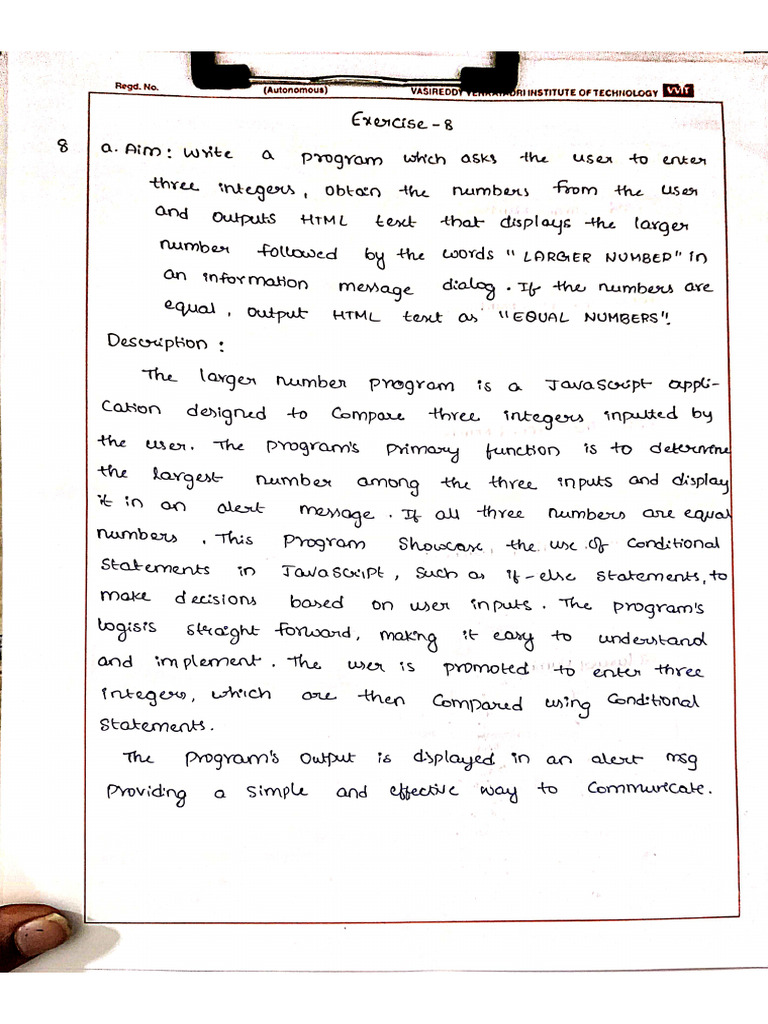 Regd. No. (Autonomous) VASIREDDY VENKATADRI INSTITUTE OF TECHNOLOGY VVIT
Exercise - 8
8 a. Aim : Write a program which asks the user to enter
three integers, obtain the numbers from the user
and outputs HTML text that displays the larger
number followed by the words "LARGER NUMBER" in
an information message dialog. If the numbers are
equal, output HTML text as "EQUAL NUMBERS".
Description :
The larger number program is a JavaScript appli-
cation designed to compare three integers inputted by
the user. The program's primary function is to determine
the largest number among the three inputs and display
it in an alert message. If all three numbers are equal
numbers. This program showcase, the use of conditional
statements in JavaScript, such as if-else statements, to
make decisions based on user inputs. The program's
logisis straight forward, making it easy to understand
and implement. The user is promoted to enter three
integers, which are then compared using conditional
statements.
The program's output is displayed in an alert msg
providing a simple and effective way to communicate.